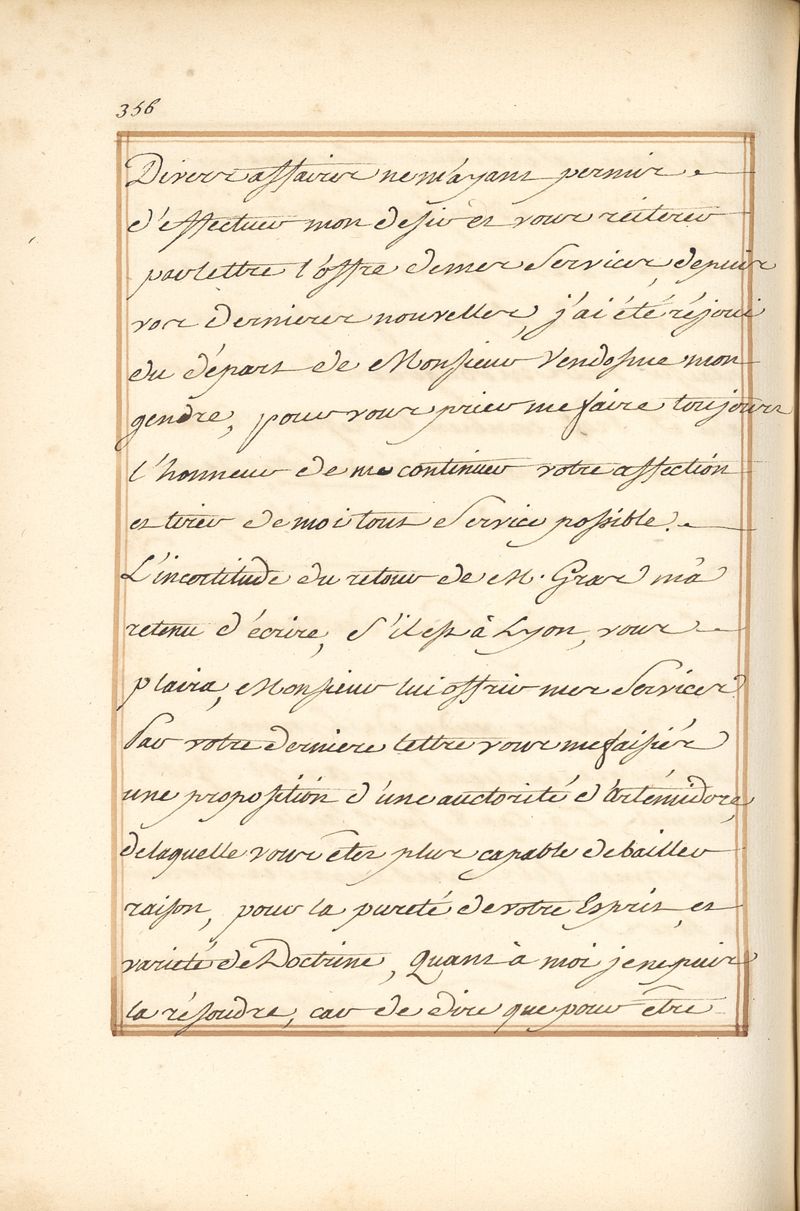 356
Divers affaires ne m'ayant permis
d'effectuer mon desir et vous reiterer
par lettre l'offre de mes Services, depuis
vos dernieres nouvelles, j'ai été réjoui
du départ de Monsieur Vendosme mon
gendre, pour vous prier me faire toujours
l'honneur de me continuer votre affection
et tirer de moi tout Service possible.
L'incertitude du retour de M. Gras m'a
retenu d'écrire, s'il est à Lyon, vous
plaira, Monsieur lui offrir mes Services
Par votre derniere lettre vous me faisiés
une proposition d'une auctorité d'Artémidore,
de laquelle vous êtes plus capable de bailler
raison, pour la pureté de votre Esprit, et
varieté de Doctrine, Quant à moi je ne puis
la résoudre, car de dire que pour être